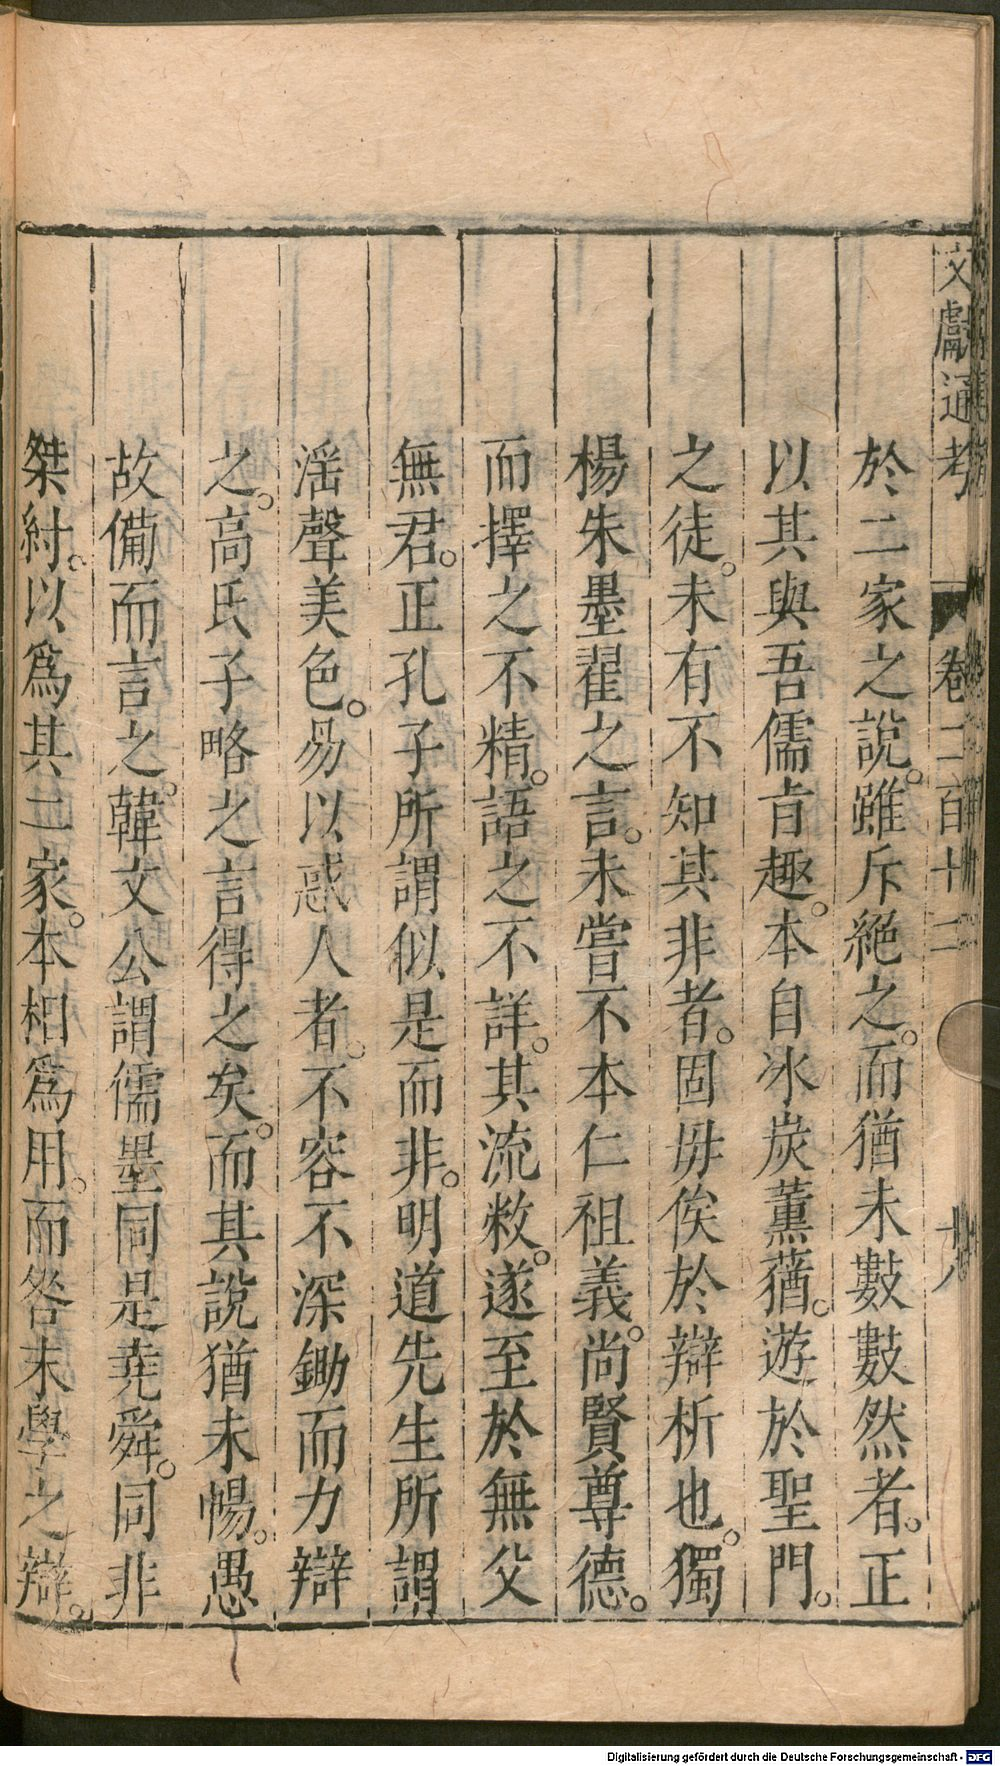 文獻通考 卷二百十二
於二家之說。雖斥絕之。而猶未數數然者。正
以其與吾儒肯趣。本自冰炭薰蕕。遊於聖門。
之徒。未有不知其非者。固毋俟於辯析也。獨
楊朱墨翟之言。未嘗不本仁祖義。尚賢尊德。
而擇之不精。語之不詳。其流敝。遂至於無父
無君。正孔子所謂似是而非。明道先生所謂
淫聲美色。易以惑人者。不容不深鋤而力辯
之。高氏子略之言得之矣。而其說猶未暢。愚
故備而言之。韓文公謂儒墨同是堯舜。同非
桀紂。以爲其二家。本相爲用。而咎末學之辯。
Digitalisierung gefördert durch die Deutsche Forschungsgemeinschaft - DFG